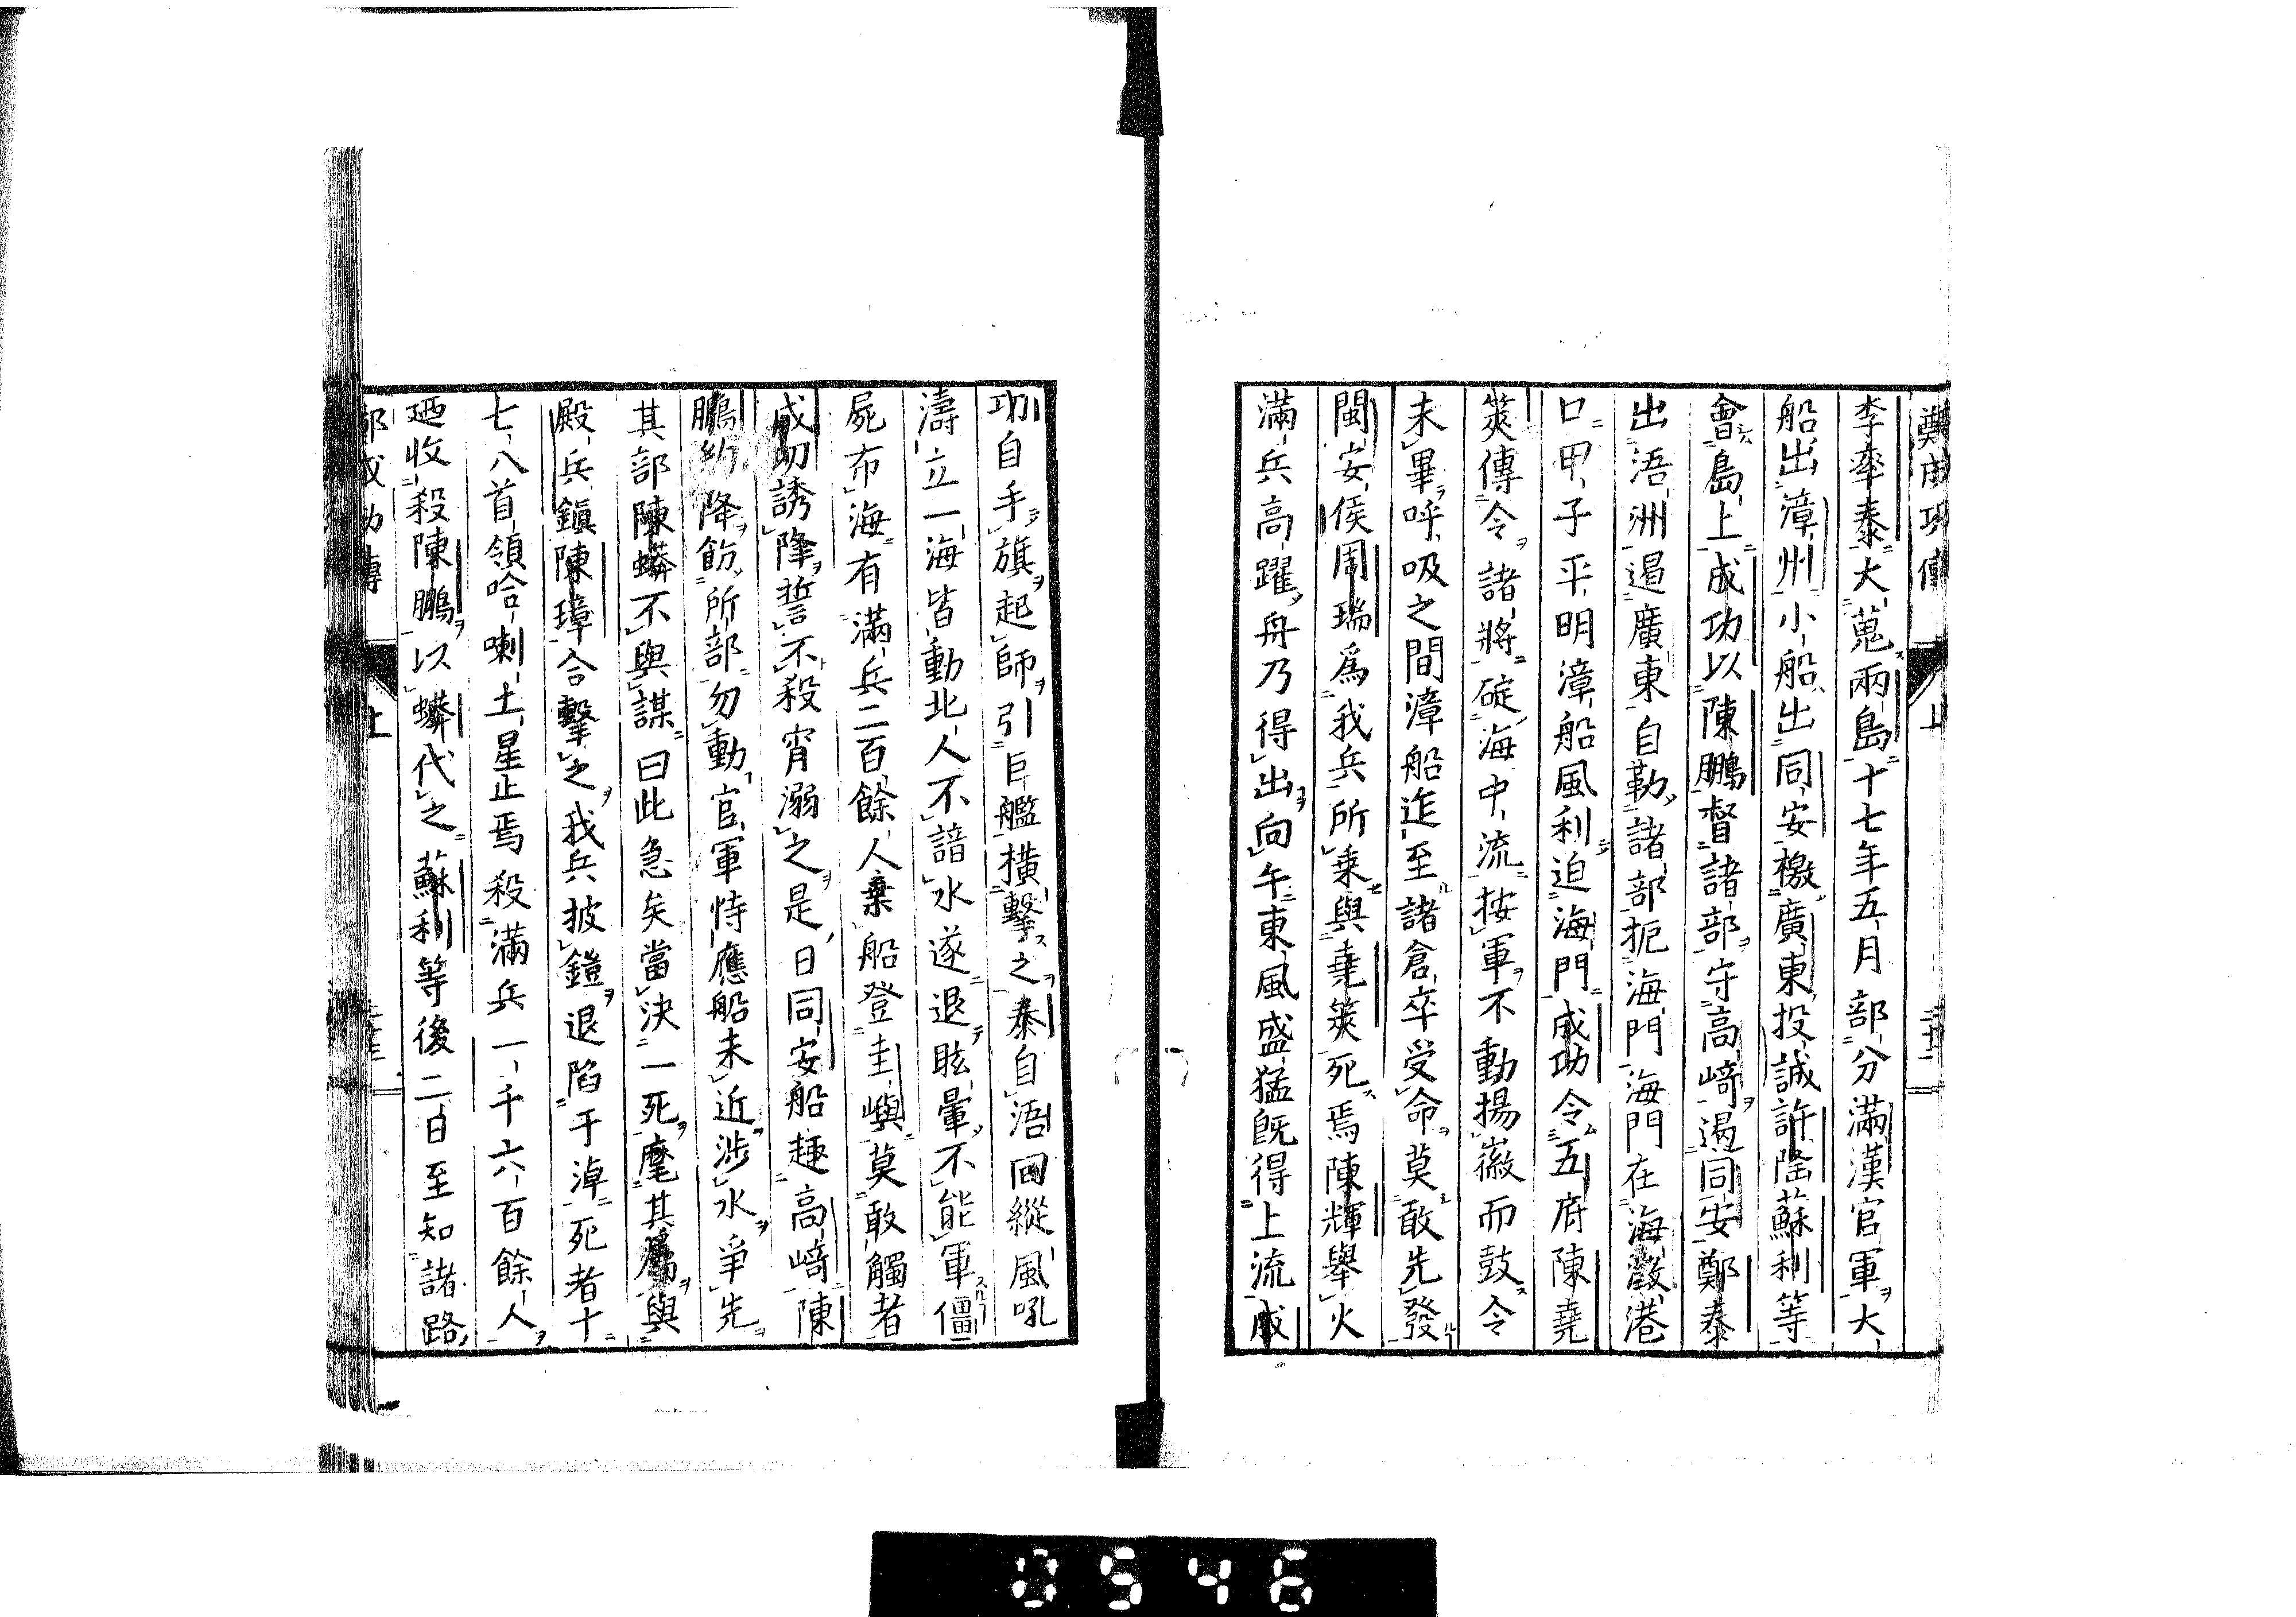 鄭成功傳 上
李率泰大蒐兩島十七年五月部分滿漢官軍大
船出漳州小船出同安檄廣東投誠許隆蘇利等
會島上成功以陳鵬督諸部守高崎遏同安鄭泰
出浯洲遏廣東自勒諸部扼海門海門在海澂港
口甲子平明漳船風利迫海門成功令五府陳堯
筴傳令諸將碇海中流按軍不動揚徽而鼓令
未畢呼吸之間漳船迮至諸倉卒受命莫敢先發
閩安侯周瑞爲我兵所乗與堯筴死焉陳輝舉火
滿兵高躍舟乃得出向午東風盛猛旣得上流成
功自手旗起師引巨艦橫擊之泰自浯回縱風吼
濤立一海皆動北人不諳水遂退眩暈不能軍僵
屍布海有滿兵二百餘人棄船登圭嶼莫敢觸者
成功誘降誓不殺宵溺之是日同安船趣高崎陳
鵬約降飭所部勿動官軍恃應船未近涉水爭先
其部陳蟒不與謀曰此急矣當決一死麾其屬與
殿兵鎭陳璋合擊之我兵披鎧退陷于淖死者十
七八首領哈喇土星止焉殺滿兵一千六百餘人
廼收殺陳鵬以蟒代之蘇利等後二日至知諸路
鄭成功傳 上
0546